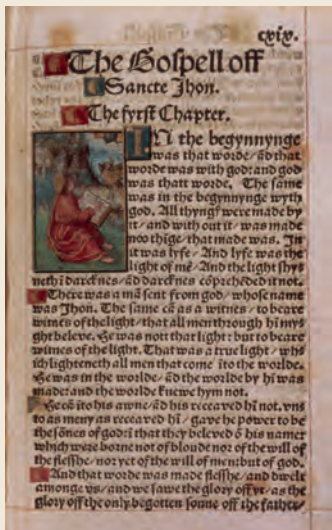 cxix.
The Gospell off
Sancte Jhon.
The fyrst Chapter.
IN the begynnynge
was that worde/ ād that
worde was with god: and god
was thatt worde. The same
was in the begynnynge wyth
god. All thyngꝭ were made by
it/ and with out it/ was made
noo thīge/ that made was. In
it was lyfe/ And lyfe was the
light of mē/ And the light shy⸗
neth ī darcknes/ ād darcknes cōprehēded it not.
There was a mā sent from god/ whose name
was Jhon. The same cā as a witnes/ to beare
witnes of the light/ that all men through hī myₛ
ght beleve. He was nott that light: but to beare
witnes of the light. That was a true light/ wh⸗
ich lighteneth all men that come īto the worlde.
He was in the worlde/ ād the worlde by hī was
made: and the worlde knewe hym not.
He cā īto his awne/ ād his receaved hī not. vn⸗
to as meny as receaved hī/ gave he power to be
the sōnes of god: ī that they beleved ō his name:
which were borne not of bloude nor of the will of
the flesshe/ nor yet of the will of men: but of god.
And that worde was made flesshe/ and dwelt
amonge vs/ and we sawe the glory off yt/ as the
glory off the only begotten sonne off the father/